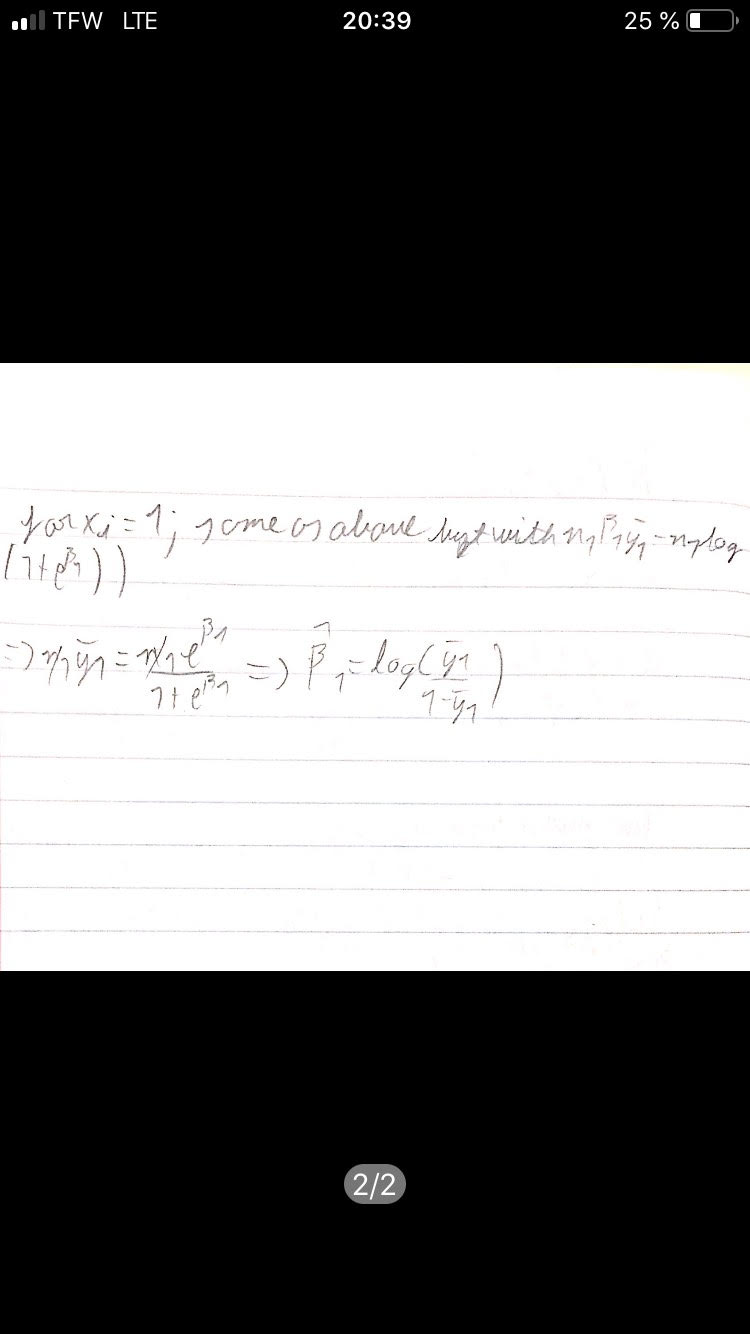 TFW LTE 20:39 25 %
for xᵢ = 1; same as above but with n₁β₁ȳ₁ - n₁log
(1+e^β₁))
=> n₁ȳ₁ = n₁e^β₁/(1+e^β₁) => β̂₁ = log(ȳ₁/(1-ȳ₁))
2/2